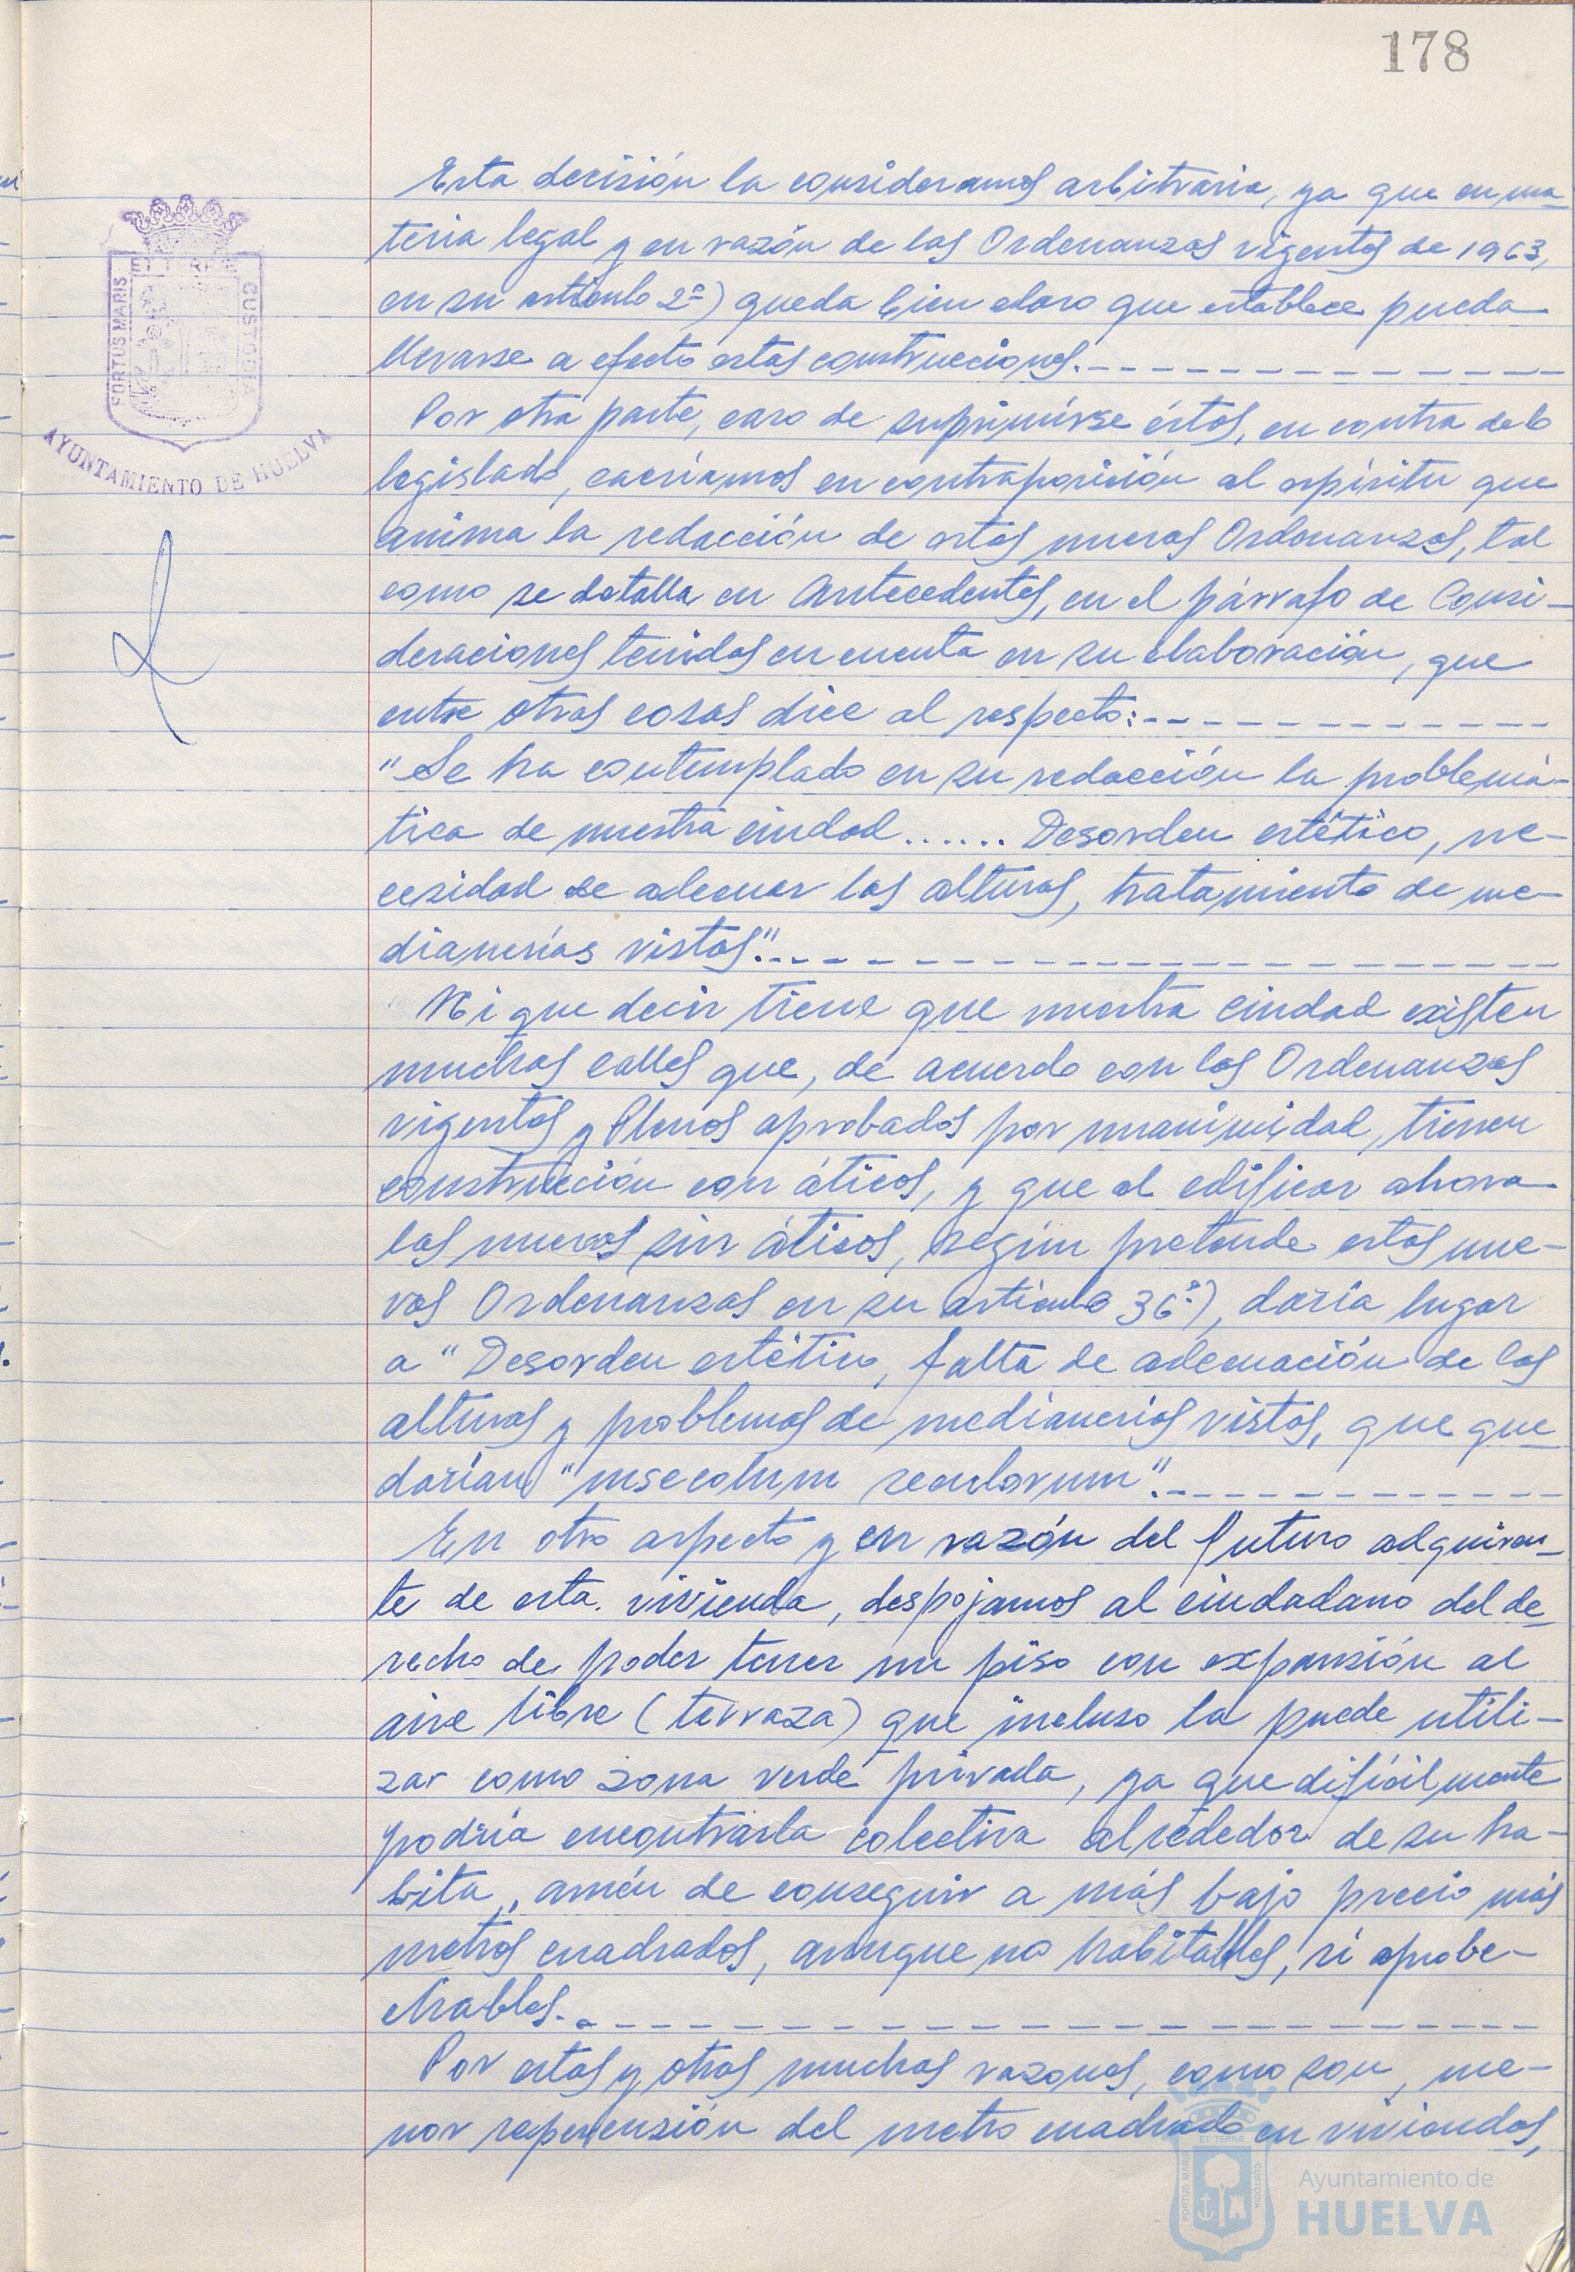 178
Esta decisión la consideramos arbitraria, ya que en ma-
teria legal y en razón de las Ordenanzas vigentes de 1963,
en su artículo 2º) queda bien claro que establece pueda
llevarse a efecto estas construcciones.
Por otra parte, caso de suprimirse éstos, en contra de lo
legislado, caeríamos en contraposición al espíritu que
anima la redacción de estas nuevas Ordenanzas, tal
como se detalla en Antecedentes, en el párrafo de Consi-
deraciones tenidas en cuenta en su elaboración, que
entre otras cosas dice al respecto:
"Se ha contemplado en su redacción la problemá-
tica de nuestra ciudad...... Desorden estético, ne-
cesidad de adecuar las alturas, tratamiento de me-
dianerías vistas".
Ni que decir tiene que nuestra ciudad existen
muchas calles que, de acuerdo con las Ordenanzas
vigentes y Plenos aprobados por unanimidad, tienen
construcción con áticos, y que al edificar ahora
las nuevas sin áticos, según pretende estas nue-
vas Ordenanzas en su artículo 36º), daría lugar
a "Desorden estético, falta de adecuación de las
alturas y problemas de medianerias vistas, que que
darían "insecolum seculorum".
En otro aspecto y en razón del futuro adquiren-
te de esta vivienda, despojamos al ciudadano del de
recho de poder tener un piso con expansión al
aire libre (terraza) que incluso la puede utili-
zar como zona verde privada, ya que dificilmente
podría encontrarla colectiva alrededor de su ha-
bita, amén de conseguir a más bajo precio más
metros cuadrados, aunque no habitables, si aprobe-
chables.
Por estas y otras muchas razones, como son, me-
nor repercusión del metro cuadrado en viviendas,
PORTUS MARIS
ET TERRE
CUSTODIA
AYUNTAMIENTO DE HUELVA
PORTUS MARIS
ET TERRÆ
CUSTODIA
Ayuntamiento de
HUELVA